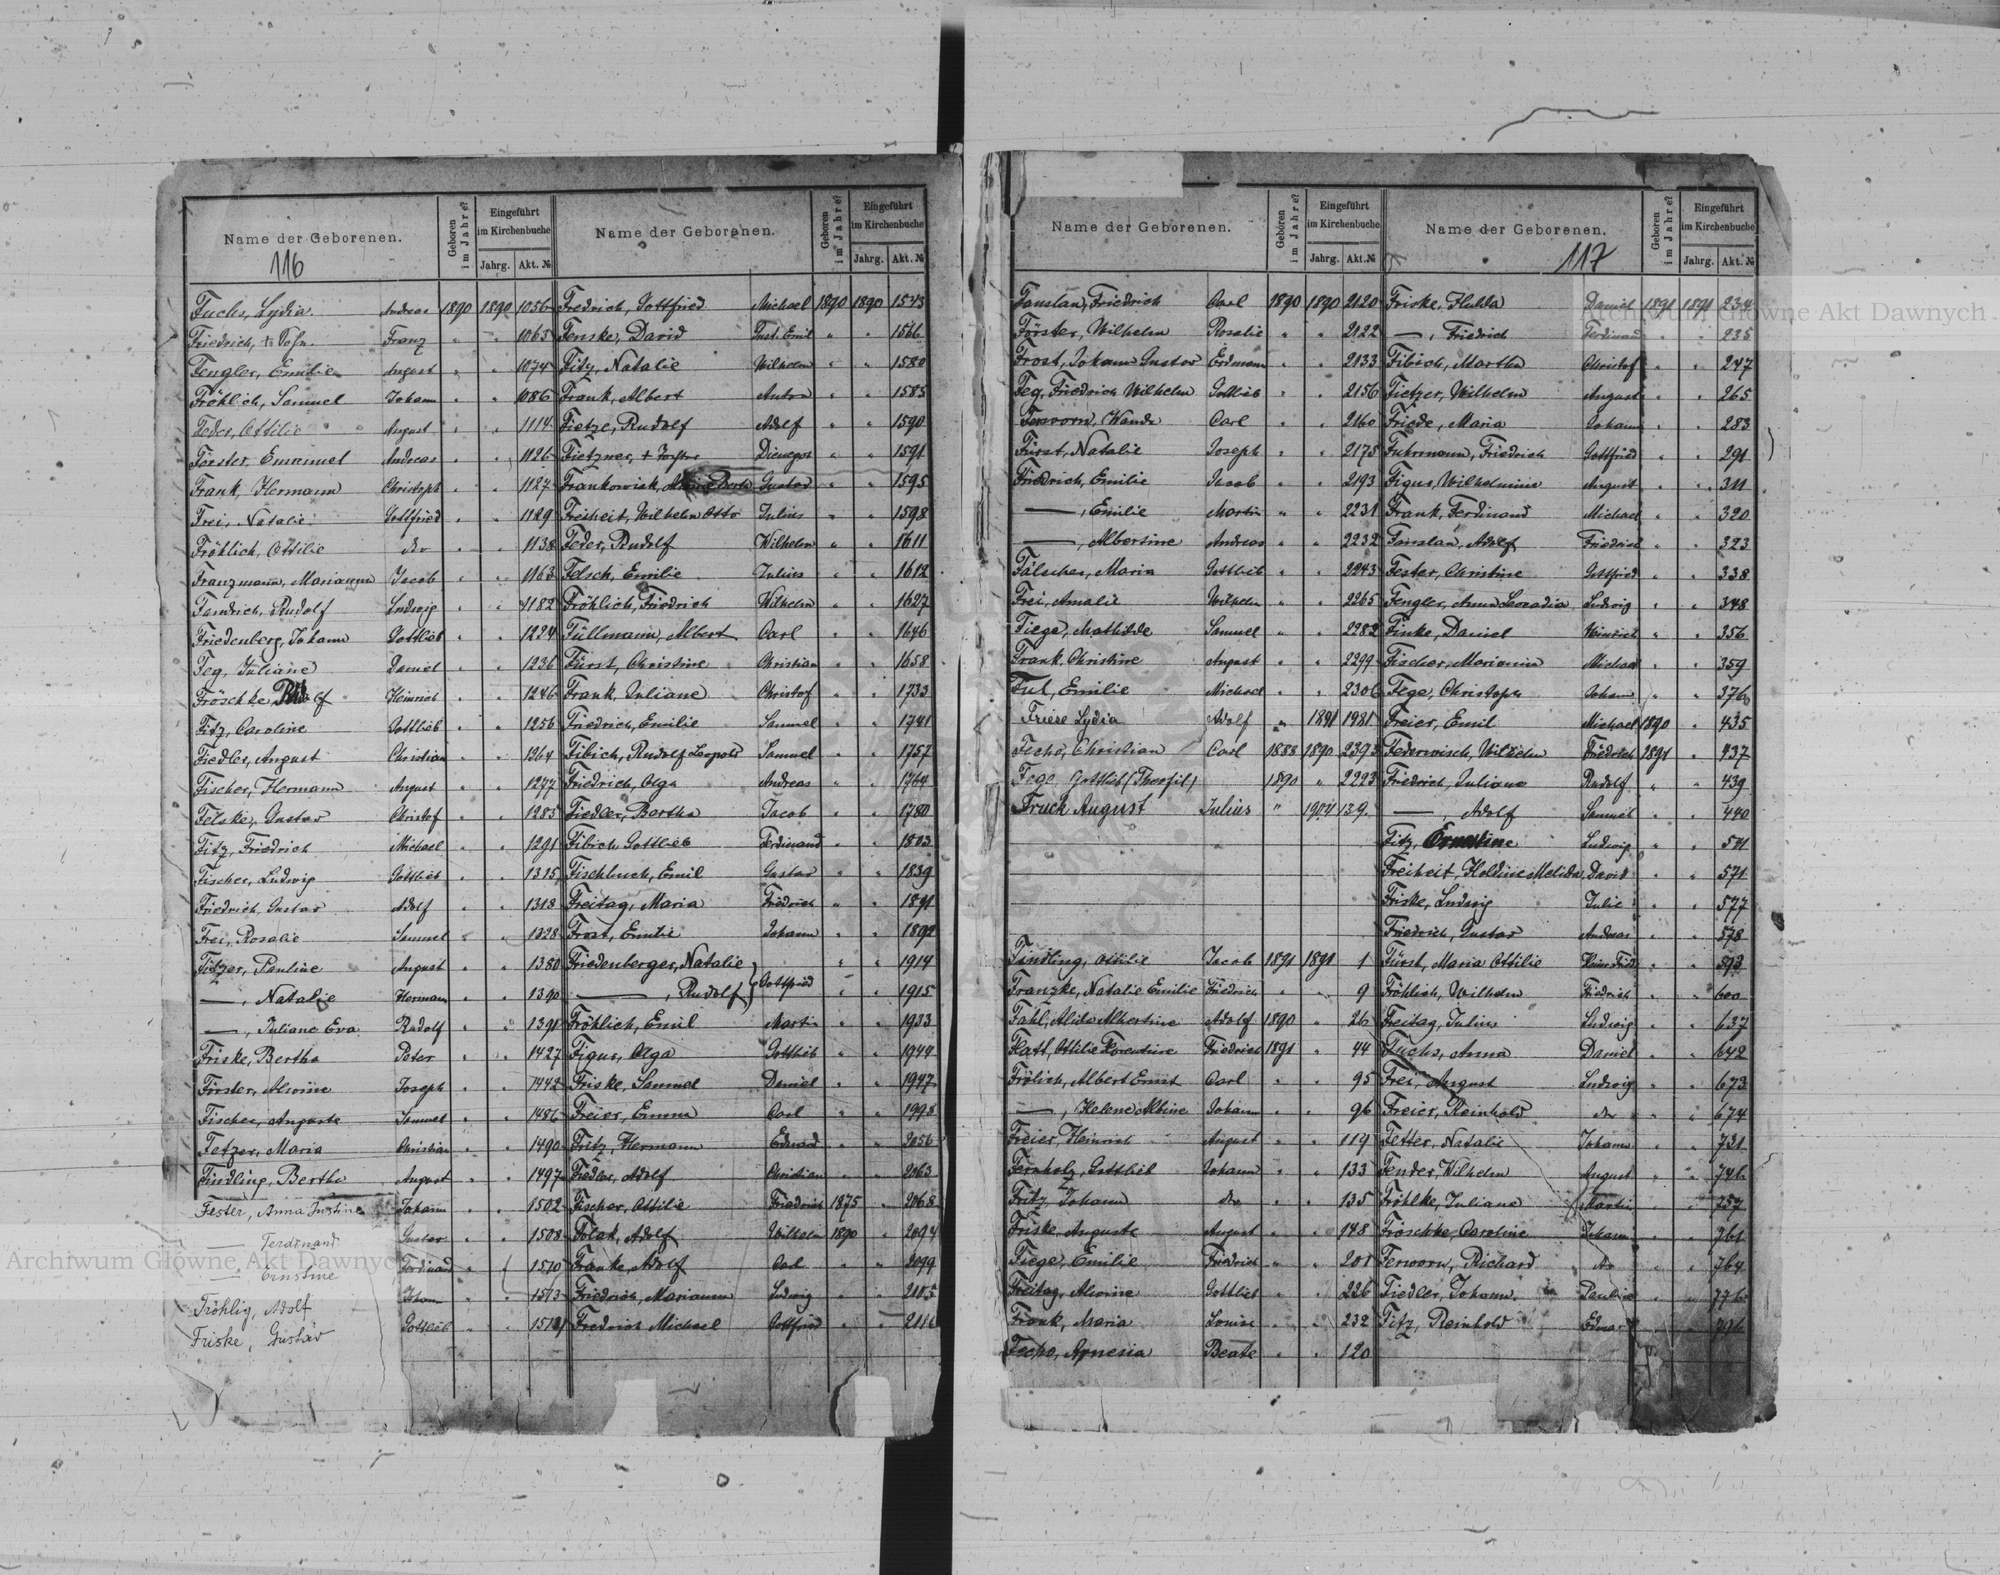 Name der Geborenen. Geboren im Jahre? Eingeführt im Kirchenbuche Jahrg. Akt. №
116
Fuchs, Lydia Andreas 1890 1890 1056
Friedrich, + Franz " " 1065
Fengler, Emilie August " " 1074
Fröhlich, Samuel Johann " " 1086
Feder, Ottilie August " " 1114
Förster, Emanuel Andreas " " 1126
Frank, Hermann Christoph " " 1127
Frei, Natalie Gottfried " " 1129
Fröhlich, Ottilie dto " " 1138
Franzmann, Marianna Jacob " " 1163
Fendrich, Rudolf Ludwig " " 1182
Friedenberg, Johann Gottlieb " " 1224
Feg, Juliane Daniel " " 1236
Fröschke Heinrich " " 1246
Fitz, Caroline Gottlieb " " 1256
Fiedler, August Christian " " 1264
Fischer, Hermann August " " 1277
Felske, Gustav Christof " " 1285
Fitz, Friedrich Michael " " 1291
Fischer, Ludwig Gottlieb " " 1315
Friedrich, Gustav Adolf " " 1318
Frei, Rosalie Samuel " " 1328
Fitzer, Pauline August " " 1380
—, Natalie Herman " " 1390
—, Juliane Eva Rudolf " " 1391
Friske, Bertha Peter " " 1427
Förster, Alwine Joseph " " 1442
Fischer, Auguste Samuel " " 1486
Fetzer, Maria Christian " " 1490
Findling, Bertha August " " 1497
Fester, Anna Justine Johann " " 1502
— Ferdinand Gustav " " 1508
— Ernstine Ferdinand " " 1510
Fröhlig, Adolf Johann " " 1513
Friske, Gustav Gottlieb " " 1518
Name der Geborenen. Geboren im Jahre? Eingeführt im Kirchenbuche Jahrg. Akt. №
Fredrich, Gottfried Michael 1890 1890 1543
Fenske, David Just. Emil " " 1566
Fitz, Natalie Wilhelm " " 1580
Frank, Albert Anton " " 1585
Fietze, Rudolf Adolf " " 1590
Fietzner, + " " 1591
Frankowiak, Gustav " " 1595
Freiheit, Wilhelm Otto Julius " " 1598
Feder, Rudolf Wilhelm " " 1611
Felsch, Emilie Julius " " 1612
Fröhlich, Friedrich Wilhelm " " 1627
Füllmann, Albert Carl " " 1646
Fürst, Christine Christian " " 1658
Frank, Juliane Christof " " 1733
Friedrich, Emilie Samuel " " 1741
Fibich, Rudolf Leopold Samuel " " 1757
Friedrich, Olga Andreas " " 1764
Fiedler, Bertha Jacob " " 1780
Fibich, Gottlieb Ferdinand " " 1803
Fischbuch, Emil Gustav " " 1839
Freitag, Maria Friedrich " " 1891
Frost, Emilie Johann " " 1892
Friedenberger, Natalie " " 1914
—, Rudolf Gottfried " " 1915
Fröhlich, Emil Martin " " 1933
Figus, Olga Gottlieb " " 1944
Friske, Samuel Daniel " " 1947
Freier, Emma Carl " " 1998
Fritz, Hermann Eduard " " 2056
Fiedler, Adolf Christian " " 2063
Fischer, Ottilie Friedrich 1875 " 2068
Polak, Adolf Wilhelm 1890 " 2094
Franke, Adolf Carl " " 2099
Friedrich, Marianna Ludwig " " 2105
Fredrich Michael Gottfried " " 2116
Name der Geborenen. Geboren im Jahre? Eingeführt im Kirchenbuche Jahrg. Akt. №
Fanslau, Friedrich Carl 1890 1890 2120
Förster, Wilhelm Rosalie " " 2122
Frost, Johann Gustav Erdmann " " 2133
Feg, Friedrich Wilhelm Gottlieb " " 2156
Ferworn, Wanda Carl " " 2160
Fürst, Natalie Joseph " " 2175
Friedrich, Emilie Jacob " " 2193
—, Emilie Martin " " 2231
—, Albertine Andreas " " 2232
Fälscher, Maria Gottlieb " " 2243
Frei, Amalie Wilhelm " " 2265
Fiege, Mathilde Samuel " " 2282
Frank, Christine August " " 2299
Ful, Emilie Michael " " 2306
Friese Lydia Adolf " 1891 1981
Fecho, Christian Carl 1888 1890 2393
Fege Gottlieb (Theofil) 1890 " 2223
Fruck August Julius " 1904 139.
Findling, Ottilie Jacob 1891 1891 1
Franzke, Natalie Emilie Friedrich " " 9
Fahl, Alida Albertine Adolf 1890 " 26
Flatt, Ottilie Florentine Friedrich 1891 " 44
Frölich, Albert Ernst Carl " " 95
—, Helene Albine Johann " " 96
Freier, Heinrich August " " 119
Fernholz, Gottlieb Johann " " 133
Fritz, Johann dto " " 135
Friske, Auguste August " " 148
Fiege, Emilie Friedrich " " 201
Freitag, Alwine Gottlieb " " 226
Frank, Maria Louise " " 232
Fecho, Agnesia Beate " " 120
Name der Geborenen. Geboren im Jahre? Eingeführt im Kirchenbuche Jahrg. Akt. №
117
Friske, Hulda Daniel 1891 1891 234
—, Friedrich Ferdinand " " 235
Fibich, Martha Christof " " 247
Fietzer, Wilhelm August " " 265
Friede, Maria Johann " " 283
Fuhrmann, Friedrich Gottfried " " 291
Figus, Wilhelmine August " " 311
Frank, Ferdinand Michael " " 320
Fanslau, Adolf Friedrich " " 323
Fester, Christine Gottfried " " 338
Fengler, Anna Leocadia Ludwig " " 348
Finke, Daniel Heinrich " " 356
Fischer, Marianna Michael " " 359
Fege, Christoph Johann " " 376
Freier, Emil Michael 1890 " 435
Federwisch, Wilhelm Friedrich 1891 " 437
Friedrich, Juliane Rudolf " " 439
—, Adolf Samuel " " 440
Fitz, Ernestine Ludwig " " 541
Freiheit, Holdine Melida David " " 571
Friske, Ludwig Julie " " 577
Friedrich, Gustav Andreas " " 578
Fürst, Maria Ottilie " " 593
Fröhlich, Wilhelm Friedrich " " 600
Freitag, Julius Ludwig " " 637
Fuchs, Anna Daniel " " 642
Frei, August Ludwig " " 673
Freier, Reinhold dto " " 674
Fetter, Natalie Johann " " 731
Fender, Wilhelm August " " 746
Fröhlke, Juliane Martin " " 757
Fröschke, Caroline Johann " " 761
Ferworn, Richard dto " " 764
Fiedler, Johann Pauline " " 776
Fitz, Reinhold " " 796
Archiwum Główne Akt Dawnych
Archiwum Główne Akt Dawnych